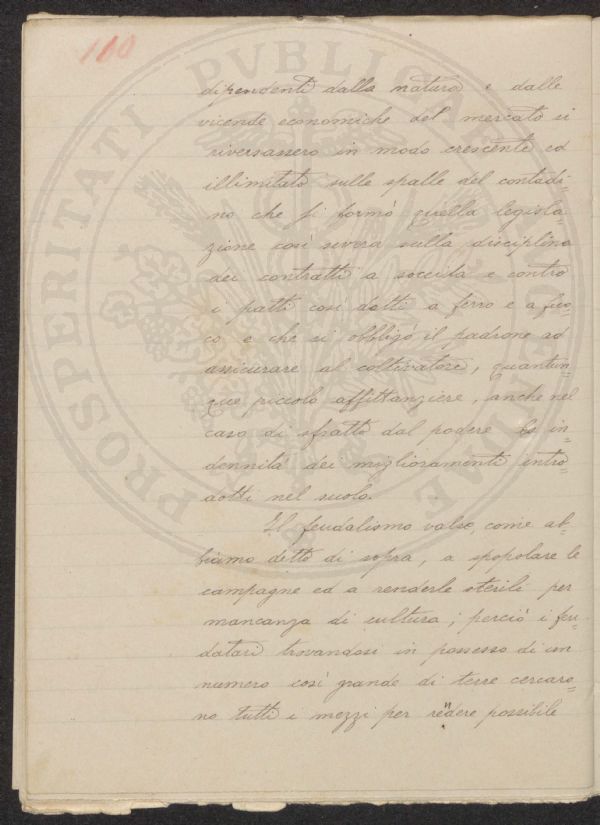 110
dipendenti dalla natura e dalle
vicende economiche del mercato si
riversassero in modo crescente ed
illimitato sulle spalle del contadi-
no che si formò quella legisla-
zione così severa sulla disciplina
dei contratti a soccida e contro
i patti così detti a ferro e a fuo-
co e che si obbligò il padrone ad
assicurare al coltivatore, quantun-
que piccolo affittanziere, anche nel
caso di sfratto dal podere le in-
dennità dei miglioramenti intro
dotti nel suolo.
Il feudalismo valse, come ab-
biamo detto di sopra, a spopolare le
campagne ed a renderle sterili per
mancanza di cultura; perciò i feu-
datari trovandosi in possesso di un
numero così grande di terre cercaro-
no tutti i mezzi per rēdere possibile
PROSPERITATI PVBLICAE AVGENDAE